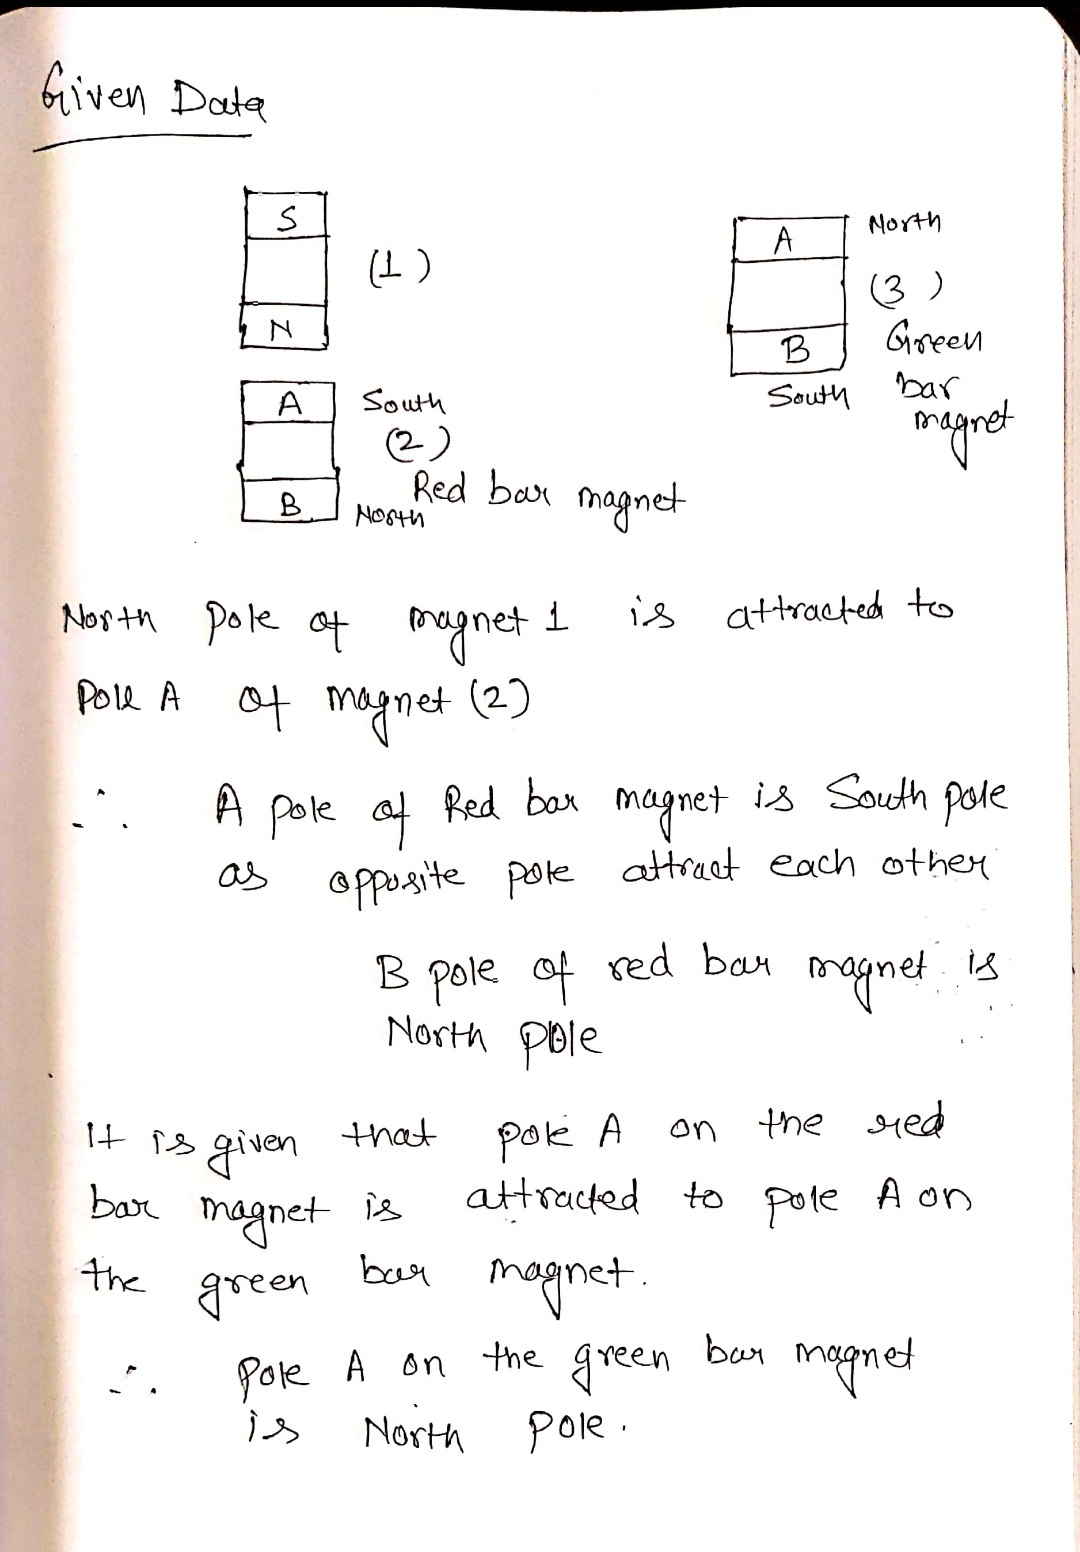 Given Data
S
(1)
N
A
North
(3)
B
Green
South
bar
magnet
A
South
(2)
Red bar magnet
B
North
North pole of magnet 1 is attracted to
Pole A of magnet (2)
∴ A pole of Red bar magnet is South pole
as opposite pole attract each other
B pole of red bar magnet is
North pole
It is given that pole A on the red
bar magnet is attracted to pole A on
the green bar magnet.
∴ Pole A on the green bar magnet
is North pole.